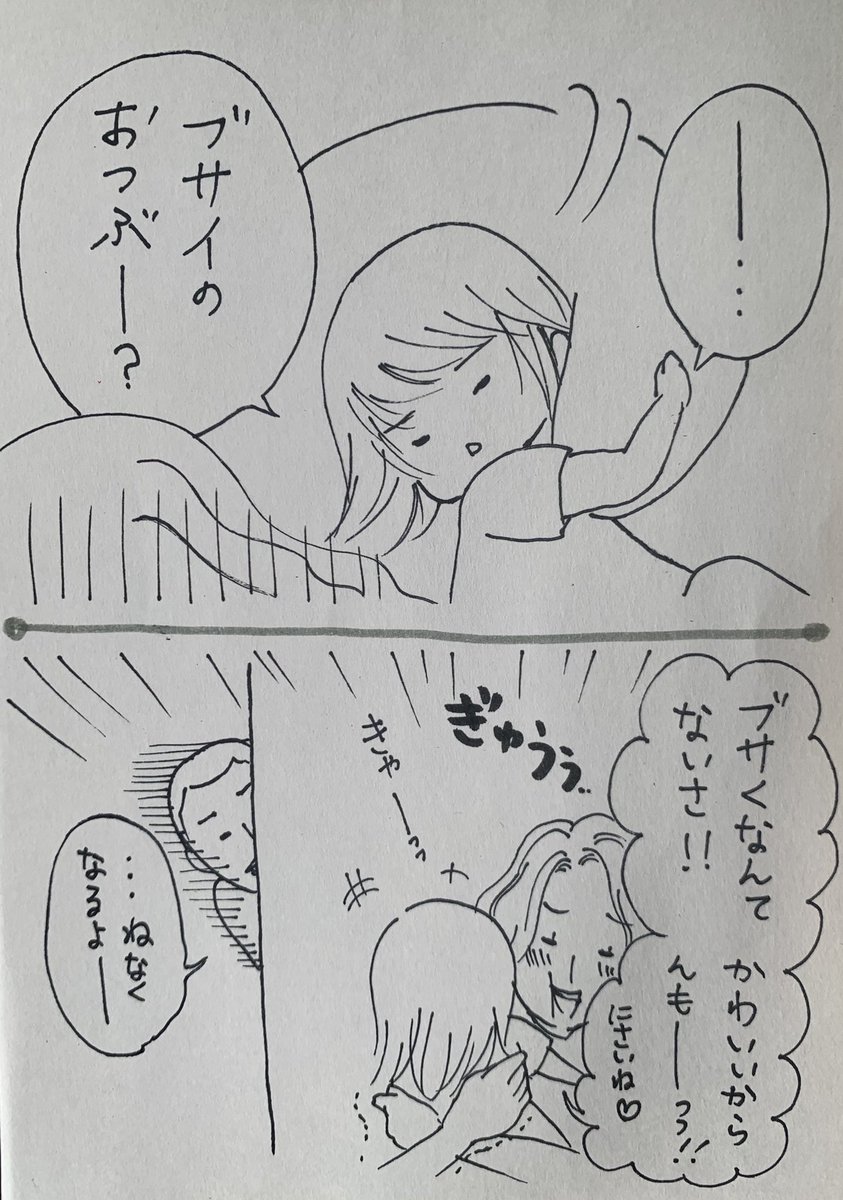 ー…
ブサイの
おつぶー？
ブサくなんて
ないさ!!
かわいいから
んもーっっ!!
にさいね♡
ぎゅうぅ..
きゃーっっ
…ねなく
なるよー